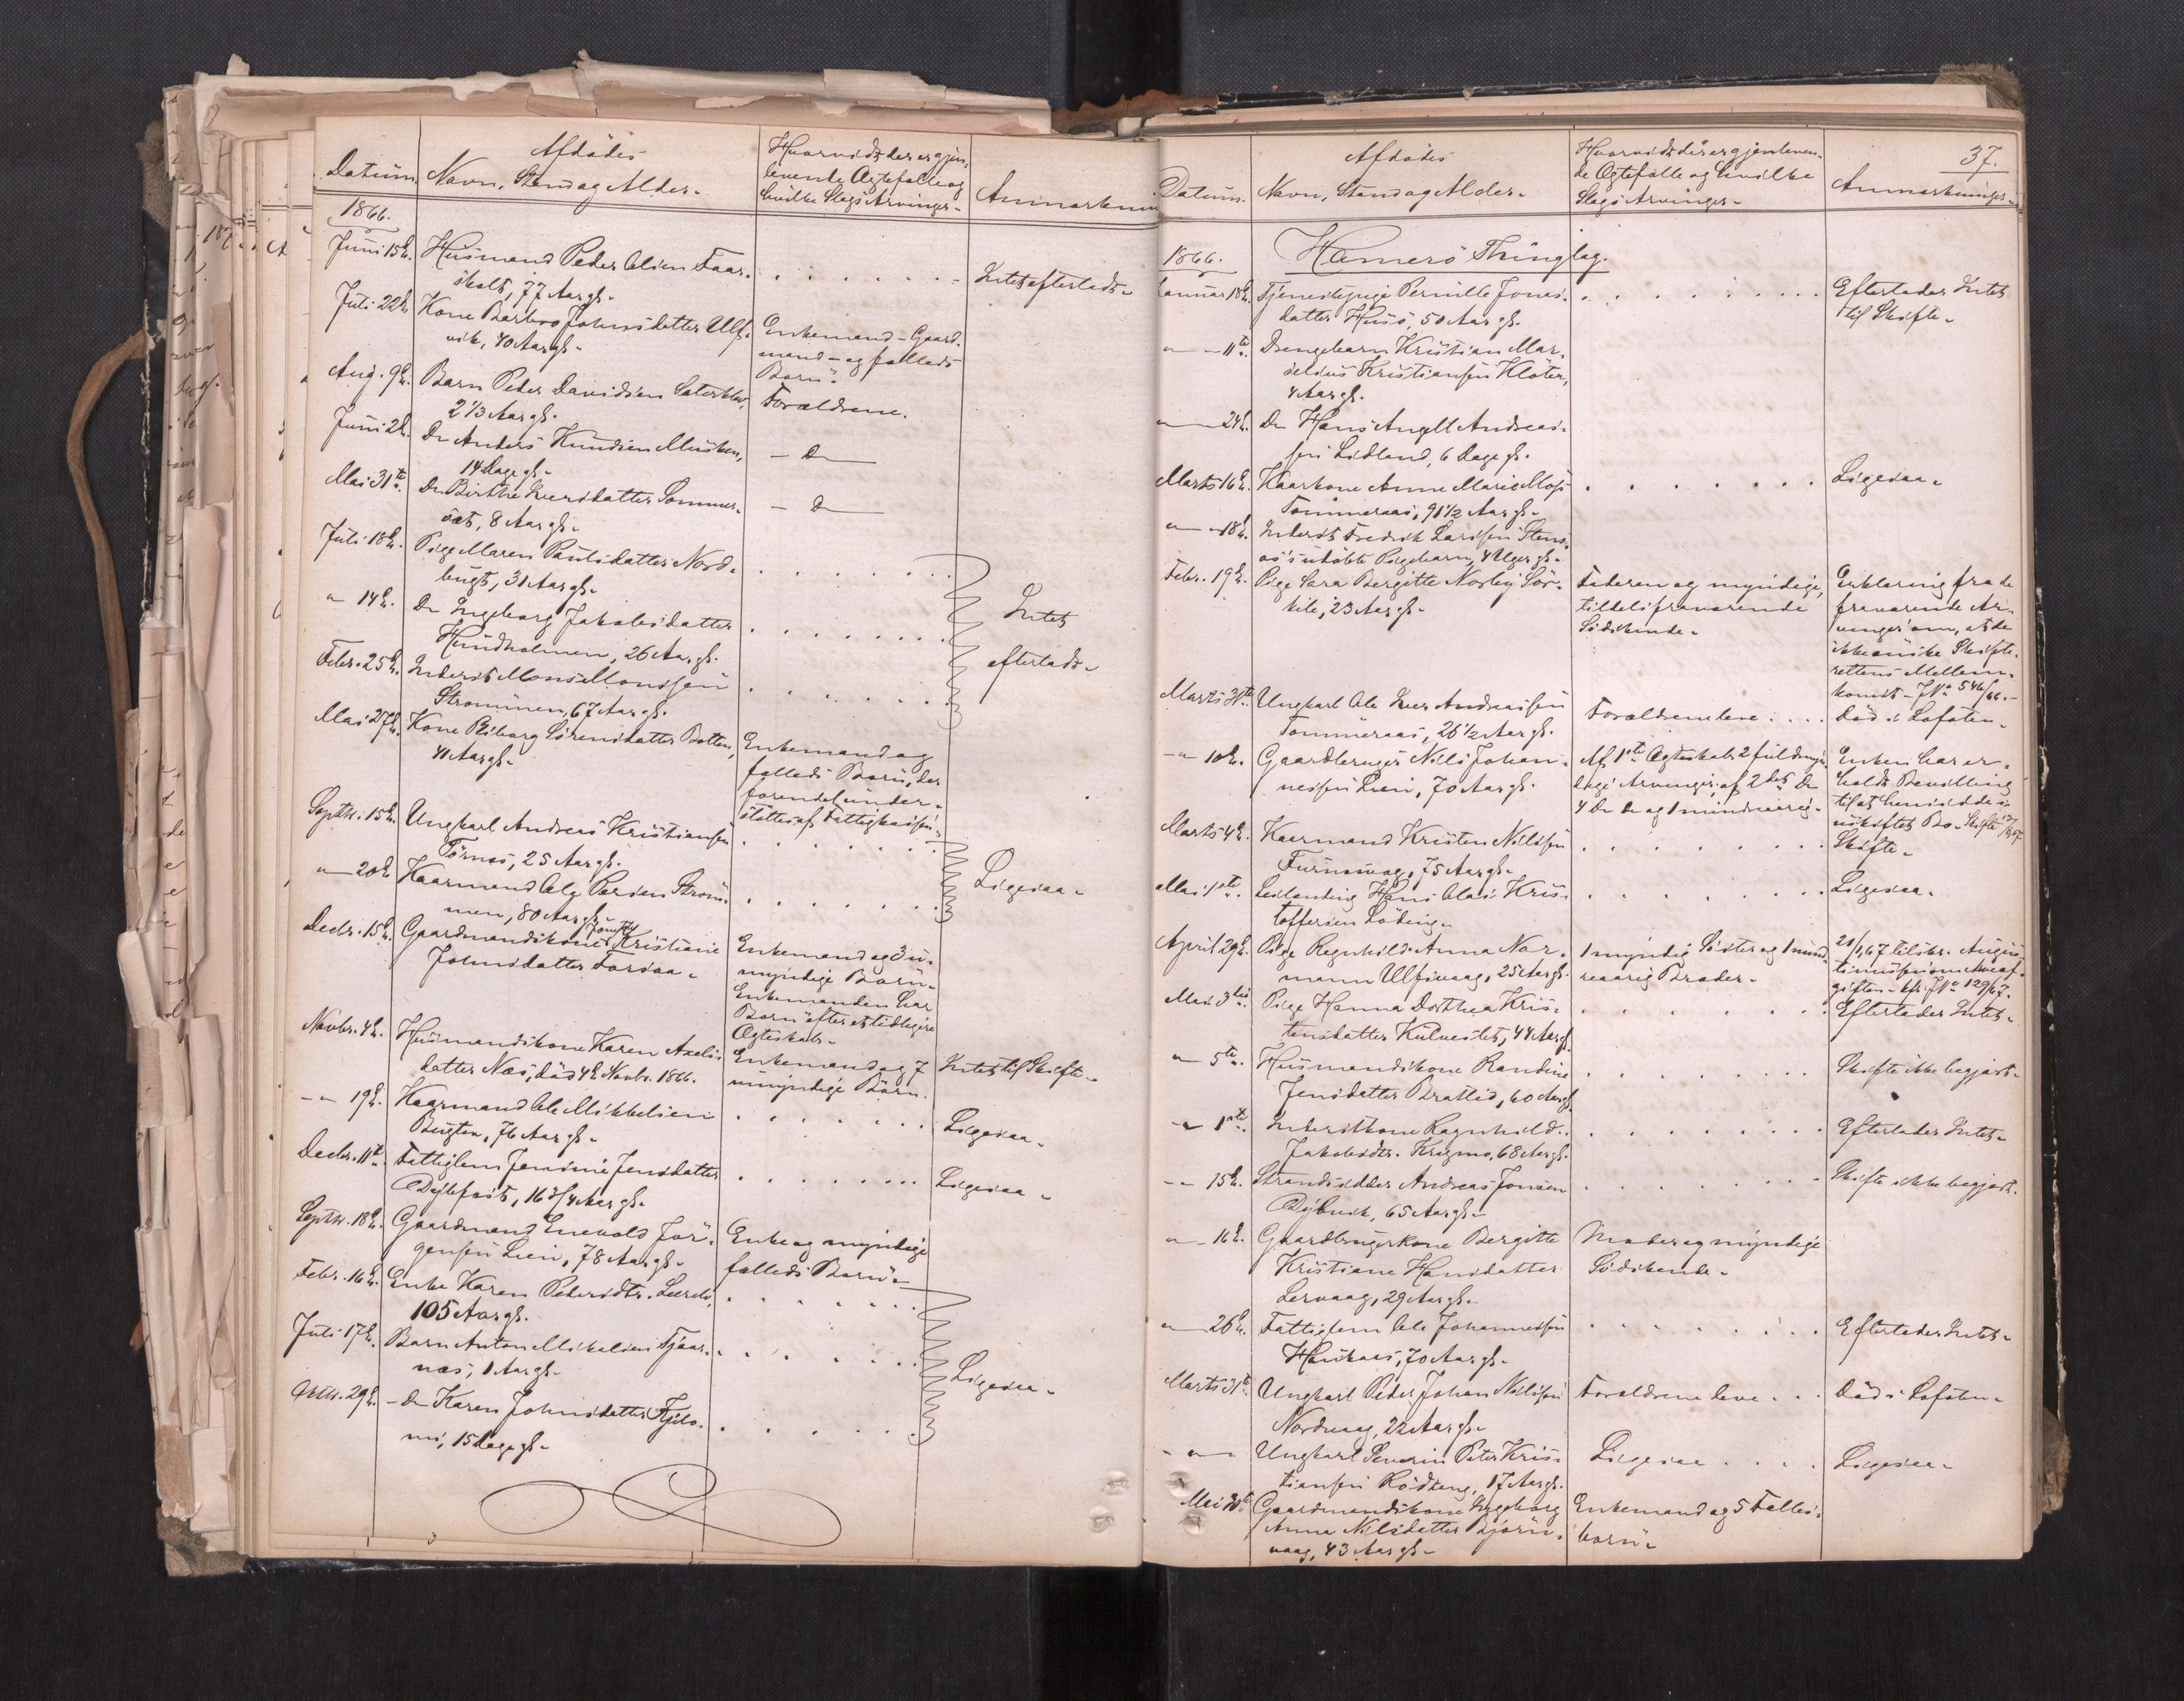 Datum.
Afdødes
Navn, Stand og Alder.
Hvorvidt der er gjen-
levende Ægtefælle og
hvilke Slags Arvinger.
Anmærkn
1866.
Juni 15de.
Husmand Peder Olsen Faar-
skalt, 77 Aar gl.
Intet efterladt.
Juli 22de
Kone Barbro Johnsdatter Ulfs-
vik, 40 Aar gl.
Enkemand - Gaard-
mand - og fælleds
Børn.
Aug. 9de.
Barn Peder Davidsen
2 1/3 Aar gl.
Forældrene.
Juni 2de.
Do Anders Knudsen Musken,
14 Dage gl.
- Do
Mai 31te.
Do Birthe Iversdatter Sommer-
sæt, 8 Aar gl.
- Do
Juli 18de.
Pige Maren Paulsdatter Nord-
bugt, 31 Aar gl.
" 14de.
Do Ingeborg Jakobsdatter
Hundholmen, 26 Aar gl.
Intet
efterladt.
Febr. 25de.
Inderst Mons Monssen
Strømmen, 67 Aar gl.
Mai 27de.
Kone Sørensdatter Botten,
41 Aar gl.
Enkemand og
fælleds Børn, der
forendel under-
støttes af Fattigkassen.
Septbr. 15de.
Ungkarl Anders Kristiansen
Tørnes, 25 Aar gl.
" 20de
Kaarmand Ole Strøm-
men, 80 Aar gl.
Ligesaa.
Decbr. 15de.
Gaardmandskone Kristiane
Johnsdatter Forsaa.
Enkemand og 3 u-
myndige Børn.
Enkemanden har
Børn efter et tidligere
Ægteskab.
Novbr. 4de.
Husmandskone Karen Axels-
datter Næs, død 4de Novbr. 1866.
Enkemand og 7
umyndige Børn.
Intet til Skifte.
" 19de.
Kaarmand Ole Mikkelsen
Bugten, 76 Aar gl.
Ligesaa.
Decbr. 11te.
Fattiglem Jensine Jensdatter
Dybfest, 16 3/4 Aar gl.
Ligesaa.
Septbr. 18de.
Gaardmand Enevold Jør-
gensen Lien, 78 Aar gl.
Enke og myndige
fælleds Børn.
Febr. 16de.
Enke Karen Pedersdtr.
105 Aar gl.
Juli 17de.
Barn Anton Mikalsen Kjær-
næs, 1 Aar gl.
Ligesaa.
29de.
- Do Karen Johnsdatter
15 Dage gl.
37.
Datum.
Afdødes
Navn, Stand og Alder.
Hvorvidt der er gjenleven-
de Ægtefælle og hvilke
Slags Arvinger.
Anmærkninger.
1866.
Hamerø Thinglag.
Januar 18de.
Tjenestepige Pernille Jons-
datter Husø, 50 Aar gl.
Efterlader Intet
til Skifte.
" 11te.
Drengebarn Kristian Mar-
selius Kristiansen
4 Aar gl.
" 24de.
Do Hans Angell Andreas-
sen Lidland, 6 Dage gl.
Marts 16de.
Kaarkone Anne Marie
Tømmeraas, 91 1/2 Aar gl.
Ligesaa.
" 18de.
Inderst Fredrik Larssen
udøbte Pigebarn, 4 Uger gl.
Febr. 19de.
Pige Sara Bergitte Norbeg Sør-
kile, 23 Aar gl.
Faderen og myndige,
tildels fraværende
Sødskende.
Erklæring fra de
fraværende Ar-
vinger om, at de
ikke ønske Skifte-
rettens Mellem-
komst - J No 546/66.
Marts 31te.
Ungkarl Ole Andreassen
Tømmeraas, 26 1/2 Aar gl.
Forældrene leve.
Død i Lofoten.
" 10de.
Gaardbruger Nils Johan-
nessen Lien, 70 Aar gl.
Af 1ste Ægteskab 2 fuldmyn-
dige Arvinger, af 2det Do
4 Do Do og 1 mindreaarig.
Enken har er-
holdt Bevilling
til at hensidde i
uskiftet Bo.
Marts 4de.
Kaarmand Kristen Nilssen
75 Aar gl.
Skifte.
Mai 1ste.
Leilænding Hans Olai Kris-
toffersen Løding.
Ligesaa.
April 29de.
Pige Regnhild Anna Nor-
mann Ulfsvaag, 25 Aar gl.
1 myndig Søster og 1 mind-
reaarig Broder.
Mai 3die
Pige Hanna Dorthea Kris-
tensdatter Kulneslet, 44 Aar gl.
Efterlader Intet.
" 5te.
Husmandskone Randine
Jensdatter Bratlid, 60 Aar gl.
Skifte ikke begjært.
" 1ste.
Inderstkone Ragnhild
Jakobsdtr. 68 Aar gl.
Efterlader Intet.
" 15de.
Strandsidder Andreas Jonsen
Dybvik, 65 Aar gl.
Skifte ikke begjært.
" 16de.
Gaardbrugerkone Bergitte
Kristiane Hansdatter
Lervaag, 29 Aar gl.
Moder og myndige
Sødskende.
" 26de.
Fattiglem Ole Johannessen
Haukaas, 70 Aar gl.
Efterlader Intet.
Marts 31te.
Ungkarl Peder Johan Nilssen
Nordvaag, 22 Aar gl.
Forældrene leve
Død i Lofoten.
- " -
Ungkarl Severin Peter Kris-
tiansen Rødtang, 17 Aar gl.
Ligesaa
Ligesaa.
Mai
Gaardmandskone Ingeborg
Anna Nilsdatter Bjørn-
vaag, 43 Aar gl.
Enkemand og 5 Fælles-
børn.